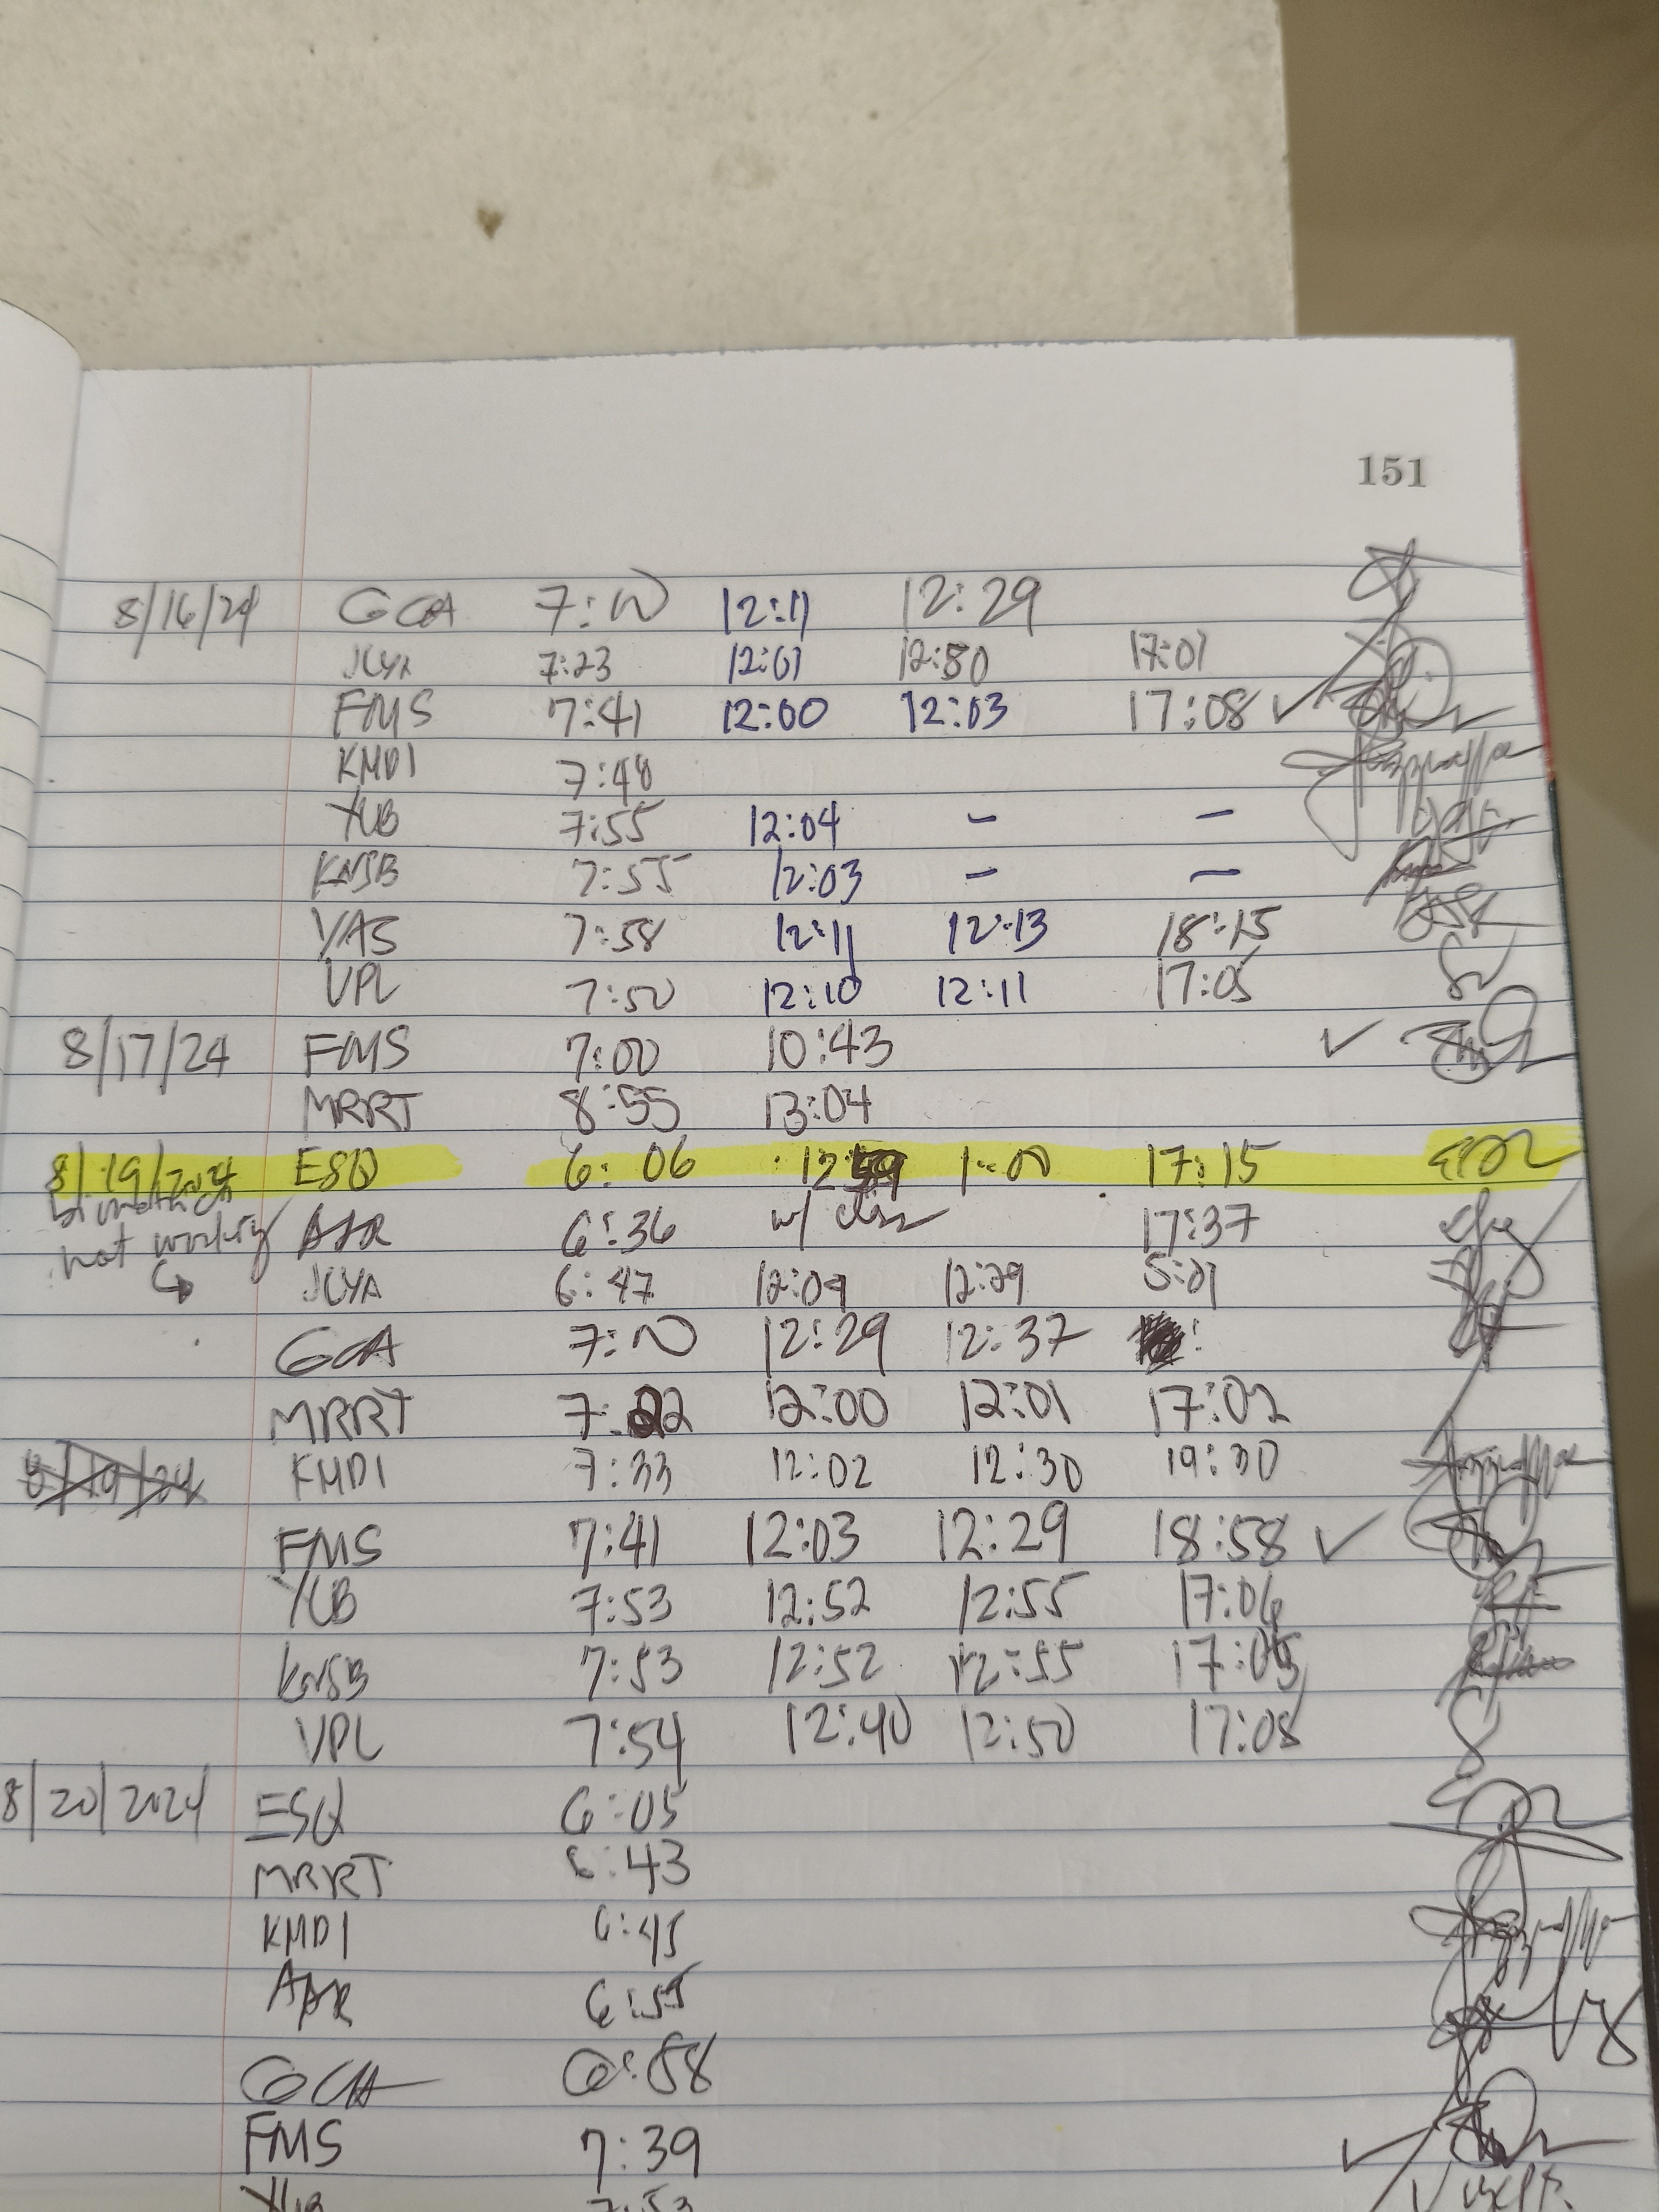 151
8/16/24 GCA 7:00 12:11 12:29
JCYA 7:23 12:01 12:30 17:01
FMS 7:41 12:00 12:03 17:08 ✓
KMDI 7:48
YUB 7:55 12:04 - -
KNSB 7:55 12:03 - -
VAS 7:58 12:11 12:13 18:15
VPL 7:50 12:10 12:11 17:05
8/17/24 FMS 7:00 10:43 ✓
MRRT 8:55 13:04
8/19/2024 ESQ 6:06 12:59 1:00 17:15
biometrics
not working AAR 6:36 w/ class 17:37
JCYA 6:47 12:09 12:29 5:01
GCA 7:00 12:29 12:37
MRRT 7:22 12:00 12:01 17:02
8/19/24 KMDI 7:33 12:02 12:30 19:30
FMS 7:41 12:03 12:29 18:58 ✓
YUB 7:53 12:52 12:55 17:06
KNSB 7:53 12:52 12:55 17:05
VPL 7:54 12:40 12:50 17:08
8/20/2024 ESQ 6:05
MRRT 6:43
KMDI 6:45
AAR 6:55
GCA 6:58
FMS 7:39 ✓
YUB 7:53